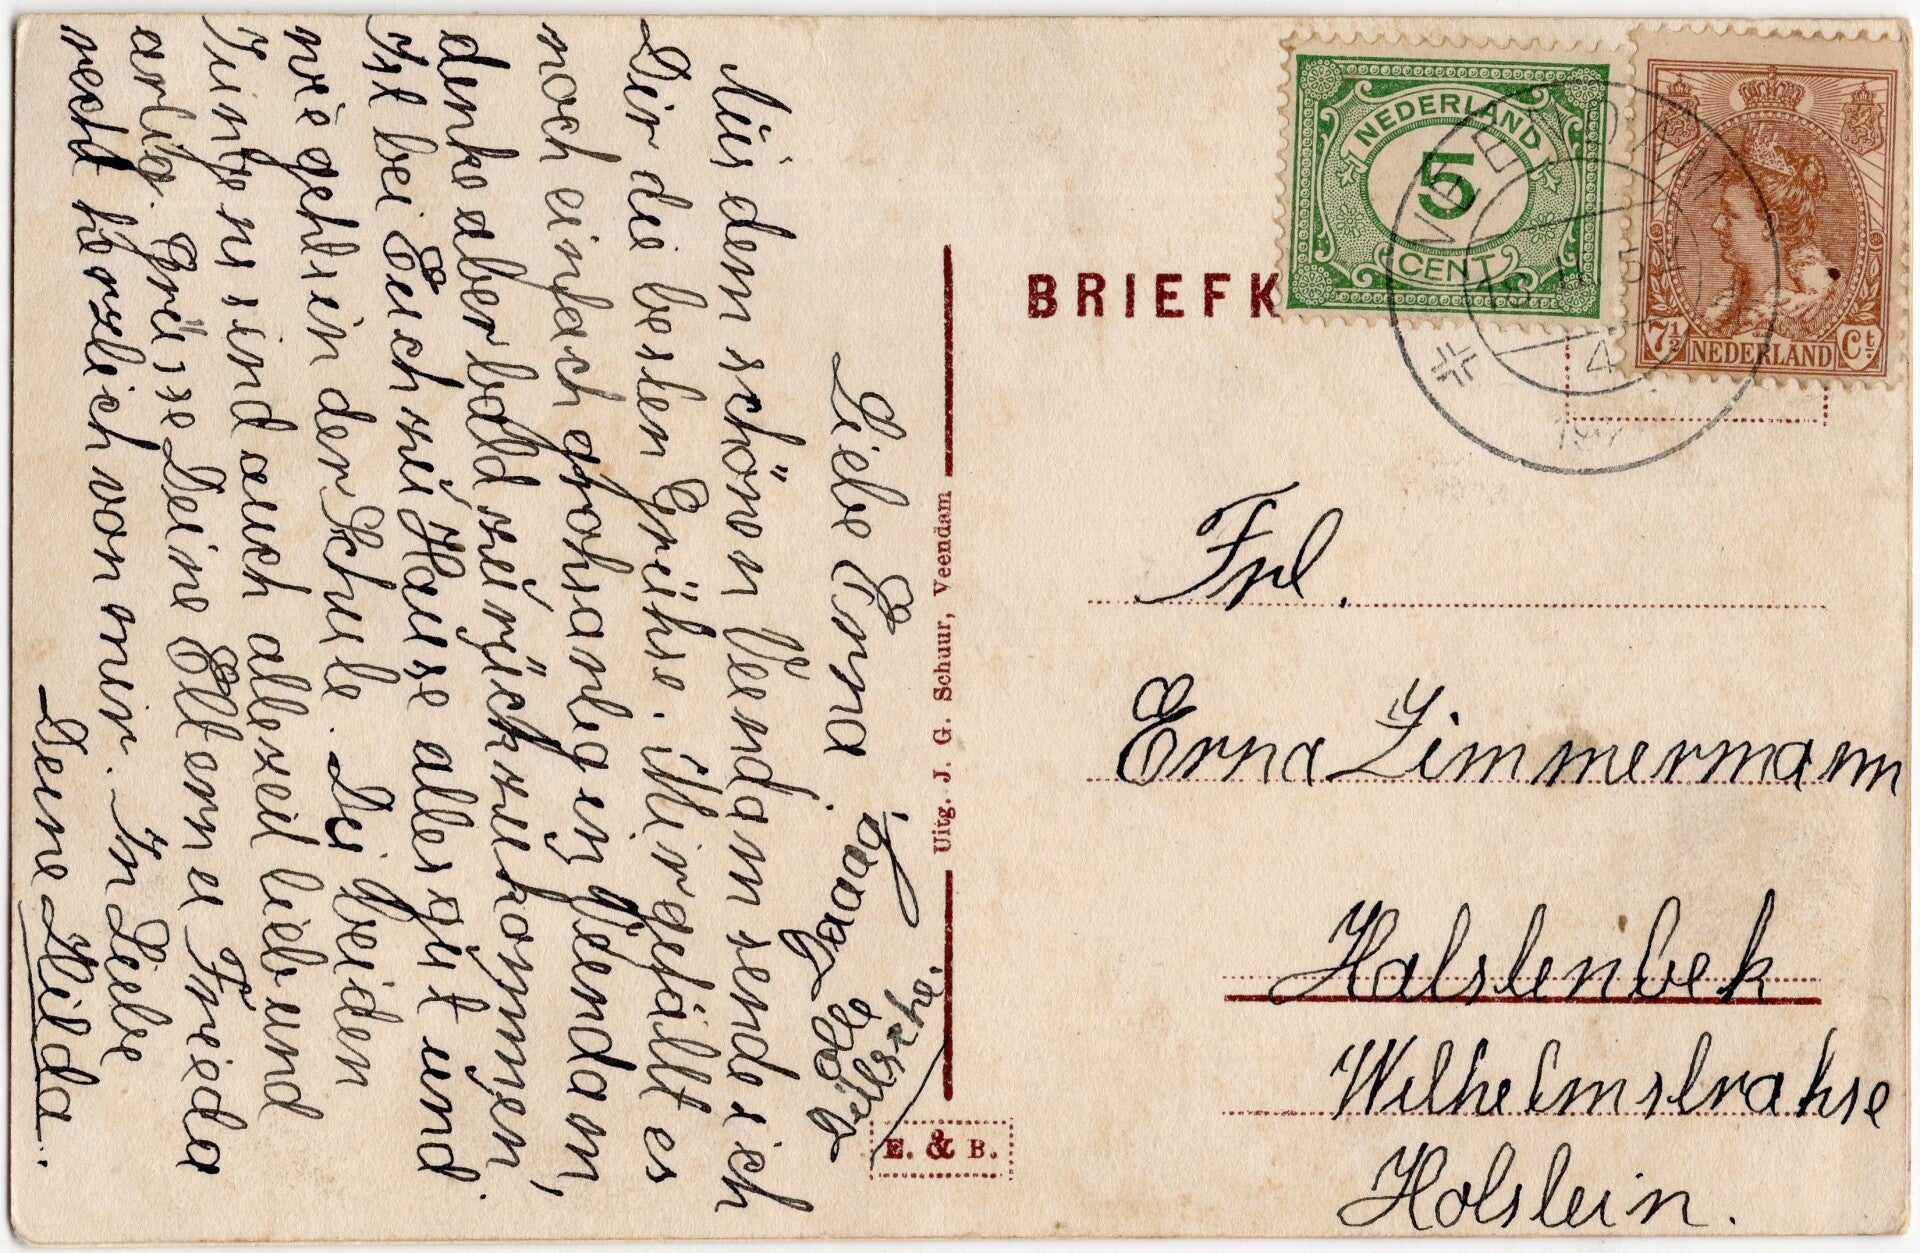 Liebe Erna!
Aus dem schönen Veendam sende ich
Dir die besten Grühse. Mir gefällt es
noch einfach grohsartig in Veendam,
denke aber bald zurückzukommen.
Ist bei Euch zu Hause alles gut und
wie geht es in der Schule. Die beiden
Jungens sind auch allezeit lieb und
artig. Grüsse Deine Eltern u Frieda
recht herzlich von mir. In Liebe
Deine Hilda.
Uitg. J. G. Schuur, Veendam
E. & B.
BRIEFK
NEDERLAND
5
CENT
7½ NEDERLAND Ct
VEENDAM
4
Frl.
Erna Zimmermann
Halstenbek
Wilhelmstrahse
Holstein.